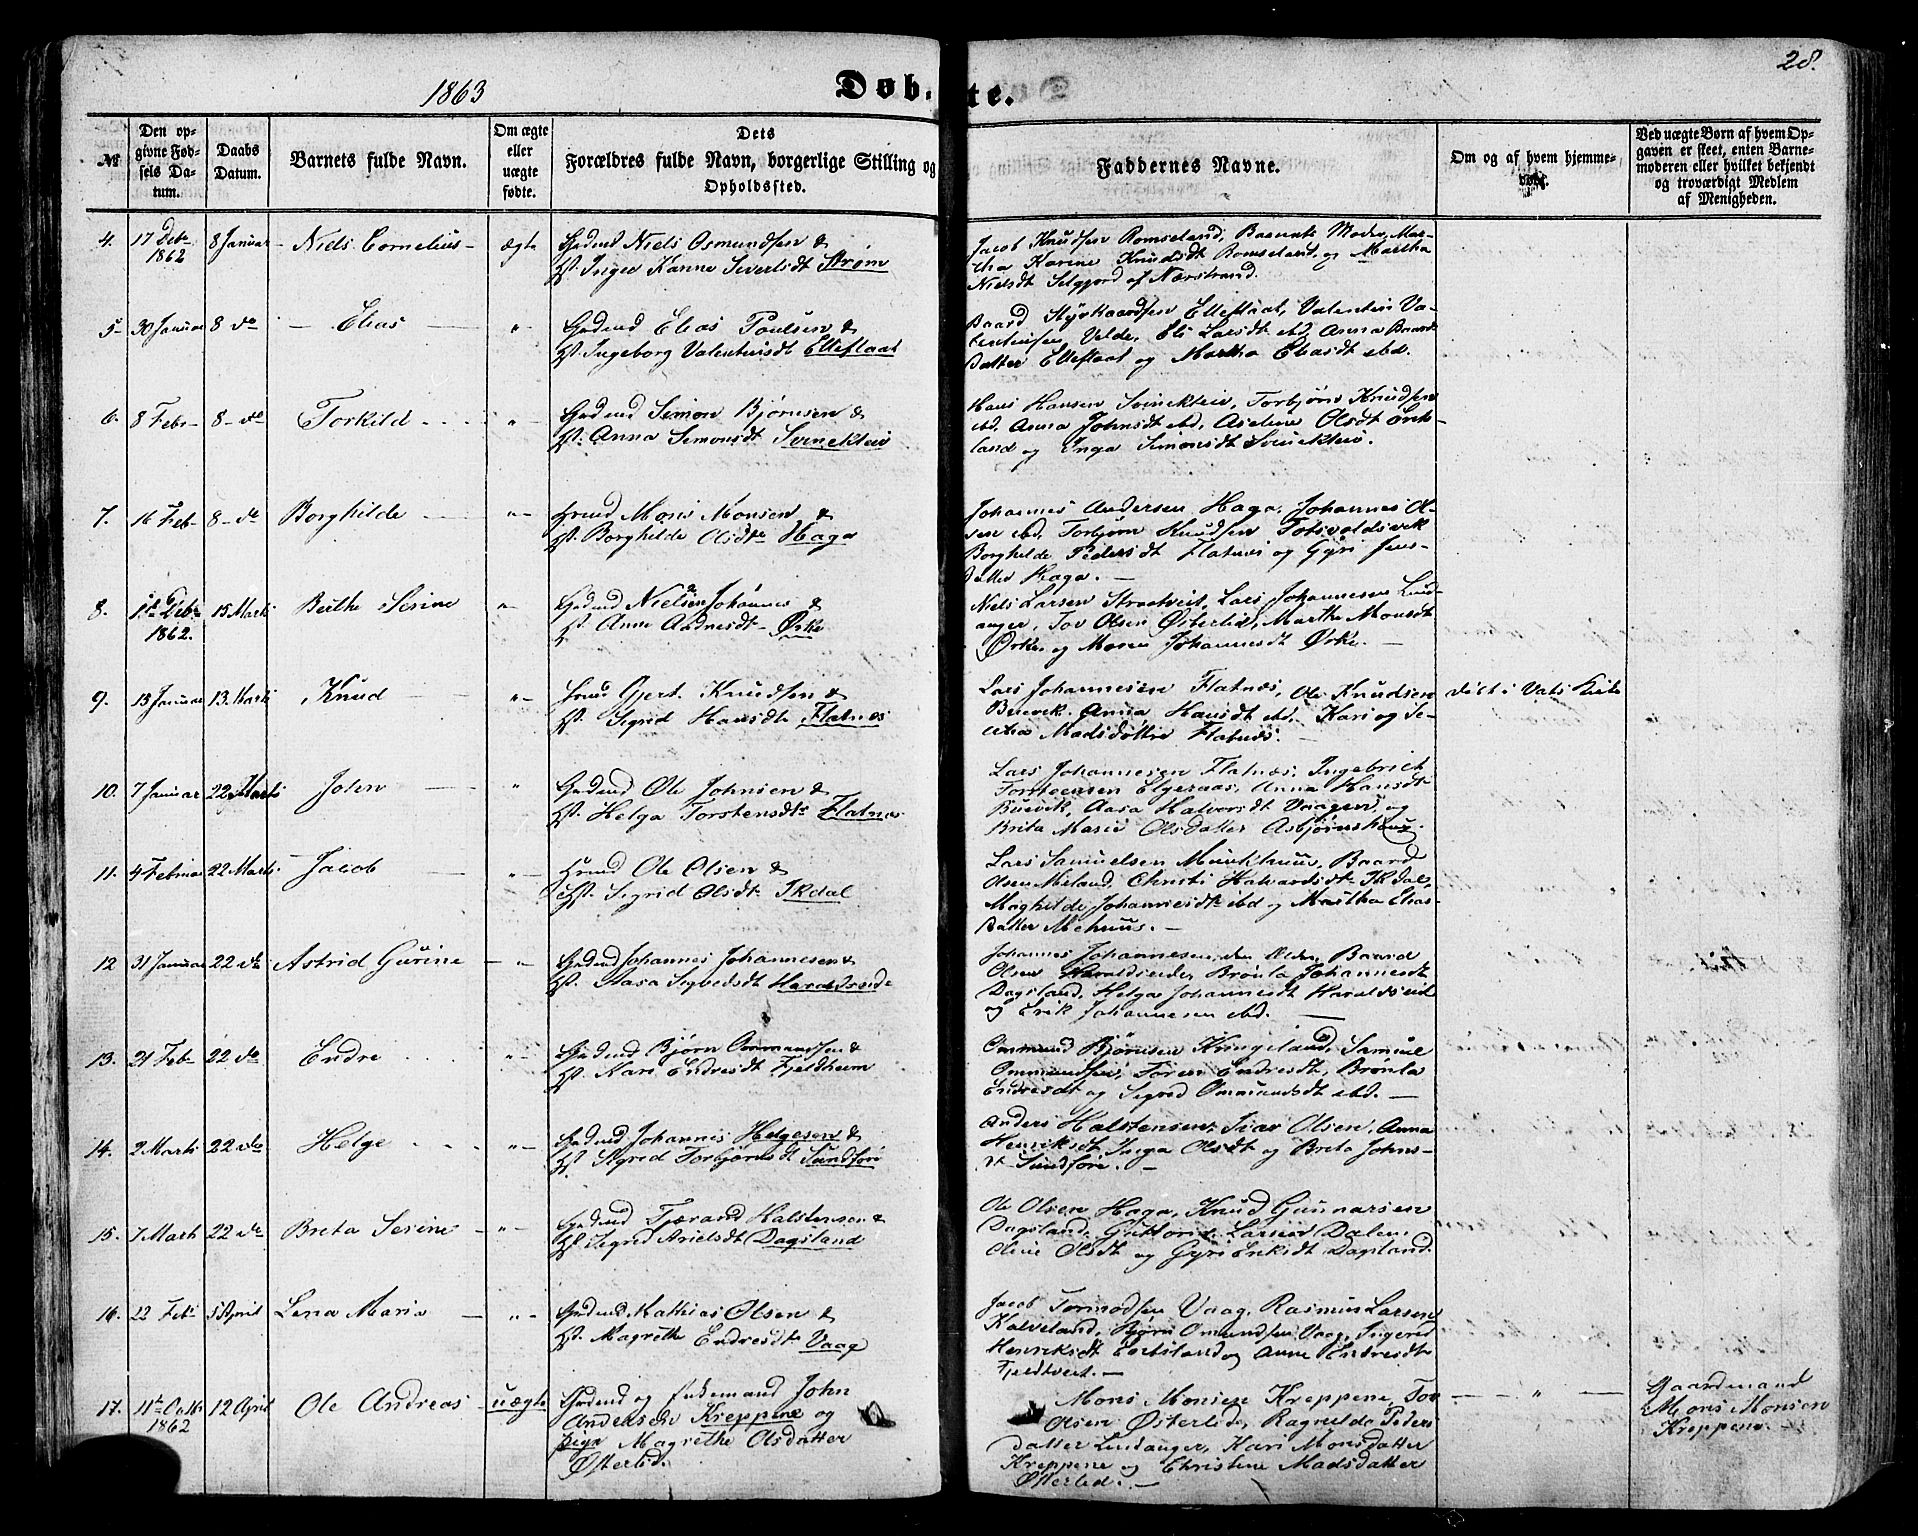 28.
1863
Døb-te.
No
Den op-
givne Fød-
sels Da-
tum.
Daabs
Datum.
Barnets fulde Navn.
Om ægte
eller
uægte
fødte.
Dets
Forældres fulde Navn, borgerlige Stilling og
Opholdssted.
Faddernes Navne.
Om og af hvem hjemme-
døbt.
Ved uægte Børn af hvem Op-
gaven er skeet, enten Barne-
moderen eller hvilket bekjendt
og troværdigt Medlem
af Menigheden.
4. 17 Debr 1862 8 Januar Niels Cornelius ægte
Niels Osmundsen &
Inger Karine Siverlsdt Strøm
Jacob Knudsen Romseland, Barnets Moder, Mar-
tha Karine Knudsdt Romseland og Martha
Nielsdt Selgjord af Nærstrand.
5 30 Januar 8 do Elias "
Elias Poulsen &
Ingeborg Valentinsdt Elleflaat
Baard Elleflaat, Valentin Va-
lentinsen Velde, Eli Larsdt ebd, Anna Baards
Datter Elleflaat og Martha Eliasdt ebd.
6. 8 Febr 8 do Torkild "
Simon Bjørnsen &
Anna Simonsdt Svinekleiv
Hans Hansen Svinekleiv, Torbjørn Knudsen
ebd, Anna Johnsdt ebd, Aselene Olsdt
land og Inga Simonsdt Svinekleiv.
7. 16 Feb 8 do Borghilde "
Mons Monsen &
Borghilde Olsdtr Haga
Johannes Andersen Haga, Johannes Ol-
sen ebd, Torbjørn Knudsen
Borghilde Pedersdt Flatnes og Gyri Jens-
datter Haga. —
8. Debr 1862. 15 Marts Berthe Serine "
Nielsen Johannes &
Anne Andresdt Ørke
Niels Larsen Straatveit, Lars Johannesen Lind-
anger, Tov Olsen Østerlid, Marthe Monsdt
Ørke, og Maren Johannesdt Ørke. —
9. 13 Januar 13. Marts Knud "
Gjert Knudsen &
Sigrid Hansdt Flatnes
Lars Johannesen Flatnæs, Ole Knudsen
Buevik, Anna Hansdt ebd, Kari og Se-
Madsdøttre Flatnæs. —
døbt i Vats Kirke
10. 7 Januar 22 Marts John "
Ole Johnsen &
Helga Torstensdtr Flatnes
Lars Johannesen Flatnæs, Ingebrict
Torstensen Elgeraas, Anna Hansdt
Buevik, Aasa Halvorsdt Vaagen, og
Brita Marie Olsdatter Asbjørnshaug.
11. 4 Februar 22 Marts Jacob "
Ole Olsen &
Sigrid Olsdt Ikdal
Lars Samuelsen Munkhuus, Baard
Olsen Meland, Christi Halvardsdtr Ikdal,
Maghilde Johannesdtr ebd og Martha Elias-
datter Mehuus. —
12 31 Januar 22 do Astrid Gurine "
Johannes Johannesen &
Aasa Sigbedsdt Haraldseide
Johannes Johannesen, den Ældre, Baard
Olsen Haraldseide, Brønla Johannesdt
Dagsland, Helga Johannesdt Haraldseid
og Erik Johannesen ebd. —
13. 21 Feb 22 do Endre "
Bjørn Ommundsen &
Kari Endresdt Fjeldheim
Ommund Bjørnsen Kringeland, Samuel
Ommundsen, Toren Endresdt, Brønla
Endresdt og Sigrid Ommundsdt ebd. —
14. 2 Marts 22 do Helge "
Johannes Helgesen &
Sigrid Torbjørnsdt Sundføre
Anders Halstensen, Ivar Olsen, Anna
Henriksdt, Inga Olsdt og Brita Johns-
dt Sundføre. —
15. 7 Marts 22 do Breta Serine "
Tjærand Halstensen &
Sigrid Arielsdt Dagsland
Ole Olsen Haga, Knud Gunnarsen
Dagsland, Guttorm Larsen Dalen,
Oline Olsdt og Gyri Eriksdt Dagsland.
16. 22 Feb 5 April Lena Maria "
Mathias Olsen &
Magrethe Endresdtr Vaag
Jacob Tormodsen Vaag, Rasmus Larsen
Kalveland, Bjørn Omundsen Vaag, Ingerid
Henriksdt og Anne Endresdt
Fjeldtveit. —
17. 11te Octbr 1862 12 April Ole Andreas uægte
og Enkemand John
Andersen Kreppene og
pige Magrethe Olsdatter
Østerlid.
Mons Monsen Kreppene, Tov
Olsen Østerlid, Ragnilda Peders-
datter Lindanger, Kari Monsdatter
Kreppene og Christene Madsdatter
Østerlid. —
— " —
Gaardmand
Mons Monsen
Kreppene.